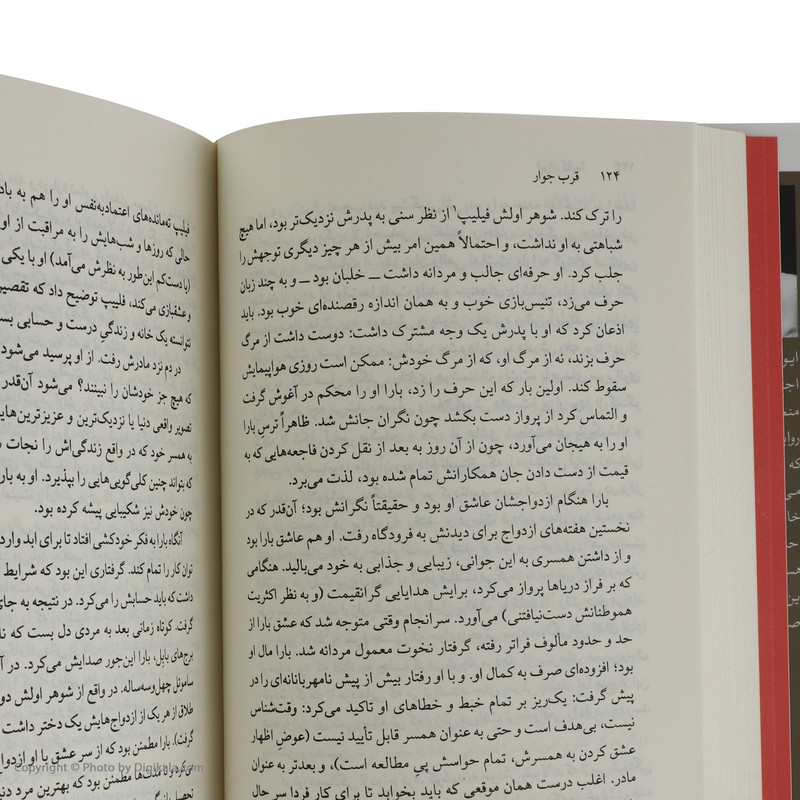 ۱۲۴ قرب جوار
را ترک کند. شوهر اولش فیلیپ۱ از نظر سنی به پدرش نزدیک‌تر بود، اما هیچ
شباهتی به او نداشت، و احتمالاً همین امر بیش از هر چیز دیگری توجهش را
جلب کرد. او حرفه‌ای جالب و مردانه داشت ــ خلبان بود ــ و به چند زبان
حرف می‌زد، تنیس‌بازی خوب و به همان اندازه رقصنده‌ای خوب بود. باید
اذعان کرد که او با پدرش یک وجه مشترک داشت: دوست داشت از مرگ
حرف بزند، نه از مرگ او، که از مرگ خودش: ممکن است روزی هواپیمایش
سقوط کند. اولین بار که این حرف را زد، بارا او را محکم در آغوش گرفت
و التماس کرد از پرواز دست بکشد چون نگران جانش شد. ظاهراً ترسِ بارا
او را به هیجان می‌آورد، چون از آن روز به بعد از نقل کردن فاجعه‌هایی که به
قیمت از دست دادن جان همکارانش تمام شده بود، لذت می‌برد.
بارا هنگام ازدواجشان عاشق او بود و حقیقتاً نگرانش بود؛ آن‌قدر که در
نخستین هفته‌های ازدواج برای دیدنش به فرودگاه رفت. او هم عاشق بارا بود
و از داشتن همسری به این جوانی، زیبایی و جذابی به خود می‌بالید. هنگامی
که بر فراز دریاها پرواز می‌کرد، برایش هدایایی گرانقیمت (و به نظر اکثریت
هموطنانش دست‌نیافتنی) می‌آورد. سرانجام وقتی متوجه شد که عشق بارا از
حد و حدود مألوف فراتر رفته، گرفتار نخوت معمول مردانه شد. بارا مال او
بود؛ افزوده‌ای صرف به کمال او. و با او رفتار بیش از پیش نامهربانانه‌ای را در
پیش گرفت: یک‌ریز بر تمام خبط و خطاهای او تاکید می‌کرد: وقت‌شناس
نیست، بی‌هدف است و حتی به عنوان همسر قابل تأیید نیست (عوضِ اظهار
عشق کردن به همسرش، تمام حواسش پیِ مطالعه است)، و بعدتر به عنوان
مادر. اغلب درست همان موقعی که باید بخوابد تا برای کار فردا سر حال
فیلیپ ته‌مانده‌های اعتمادبه‌نفس او را هم به باد
حالی که روزها و شب‌هایش را به مراقبت از او
(یا دست‌کم این‌طور به نظرش می‌آمد) او با یکی
و عشقبازی می‌کند، فلیپ توضیح داد که تقصیر
نتوانسته یک خانه و زندگیِ درست و حسابی
در دم نزد مادرش رفت. از او پرسید می‌شود
که هیچ جز خودشان را نبینند؟ می‌شود آن‌قدر
تصویر واقعی دنیا با نزدیک‌ترین و عزیزترین‌هایی
به همسر خود که در واقع زندگی‌اش را نجات
که بتواند چنین کلی‌گویی‌هایی را بپذیرد. او به بار
چون خودش نیز شکیبایی پیشه کرده بود.
آنگاه بارا به فکر خودکشی افتاد تا برای ابد وارد
توان کار را تمام کند. گرفتاری این بود که شرایط
داشت که باید حسابش را می‌کرد. در نتیجه به جای
گرفت. کوتاه زمانی بعد به مردی دل بست که
برج‌های بابل، بارا این‌جور صدایش می‌کرد. در
ساموئل چهل‌وسه‌ساله. در واقع از شوهر اولش دو
طلاق از هر یک از ازدواج‌هایش یک دختر داشت
گرفت). بارا مطمئن بود که از سر عشق با او ازدواج
می‌کرد و تا مدت‌ها مطمئن بود که بهترین مرد
Copyright © Photo by Digikala.com